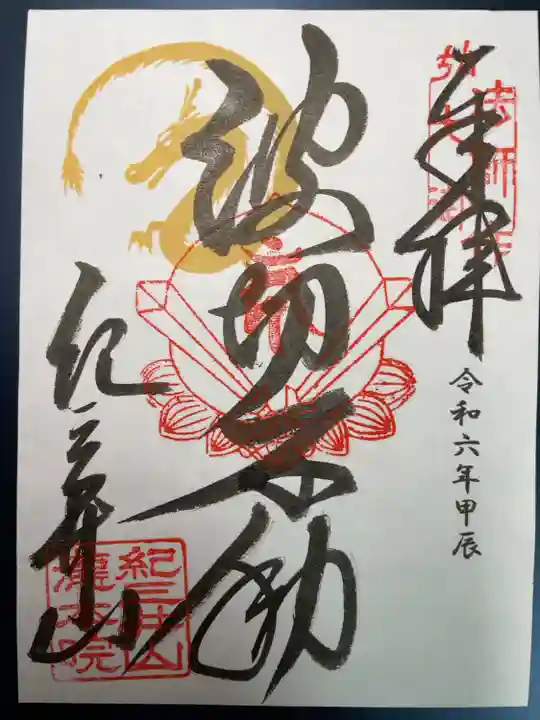 奉拝
令和六年甲辰
波切不動
紀三井山
紀三井山
瀧本院